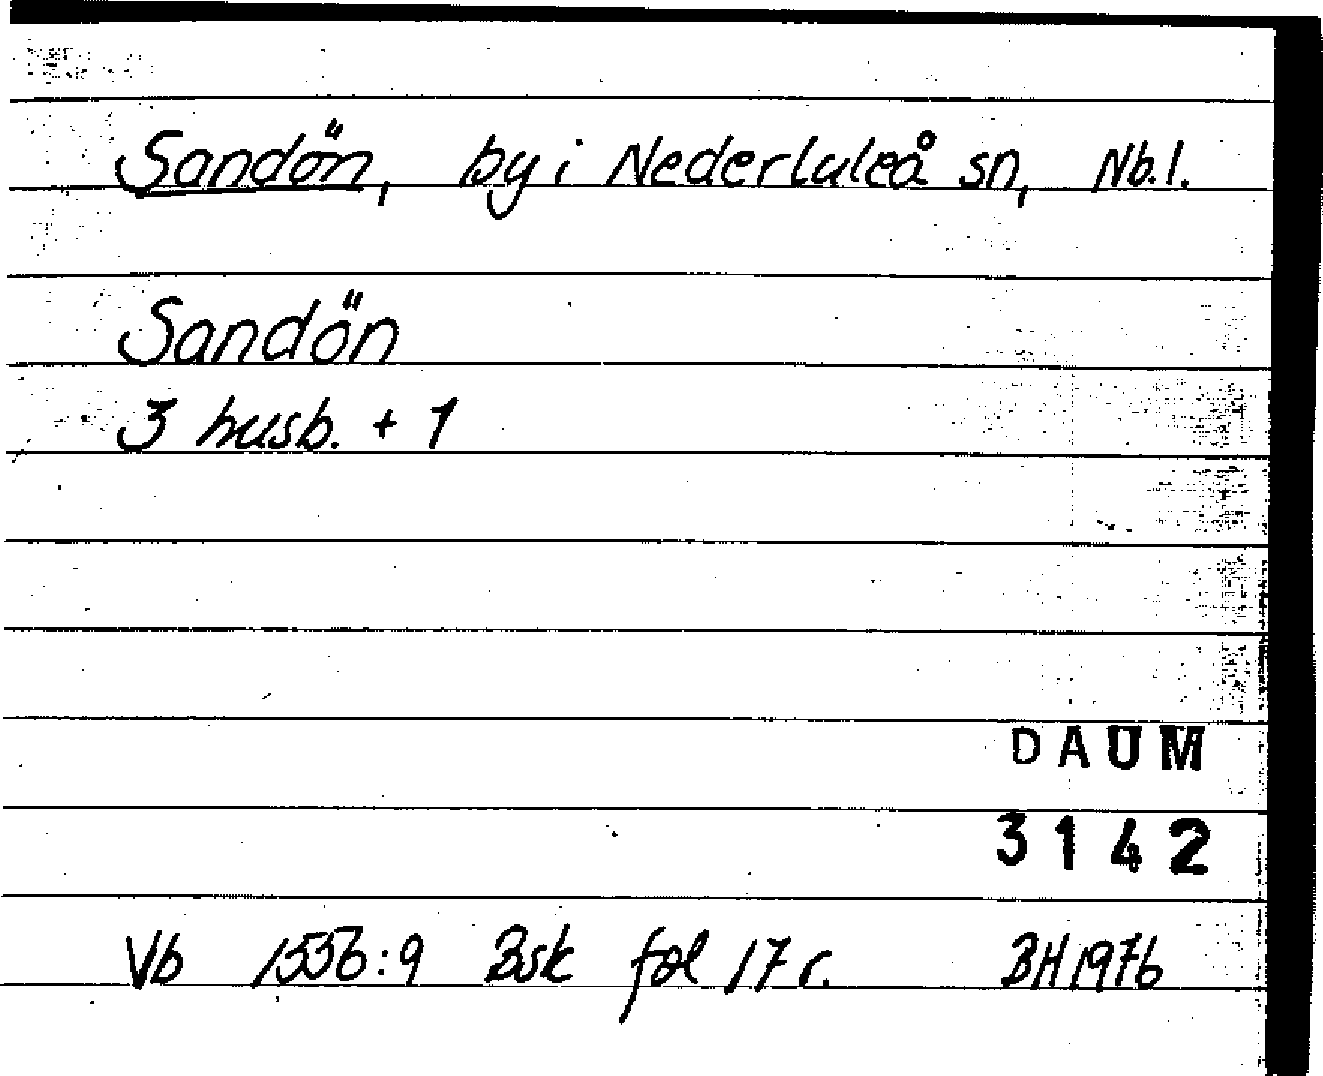 Sandön, by i Nederluleå sn, Nb.l.
Sandön
3 husb. + 1
DAUM
3142
Vb 1556:9 Bsk fol 17 r. BH 1976